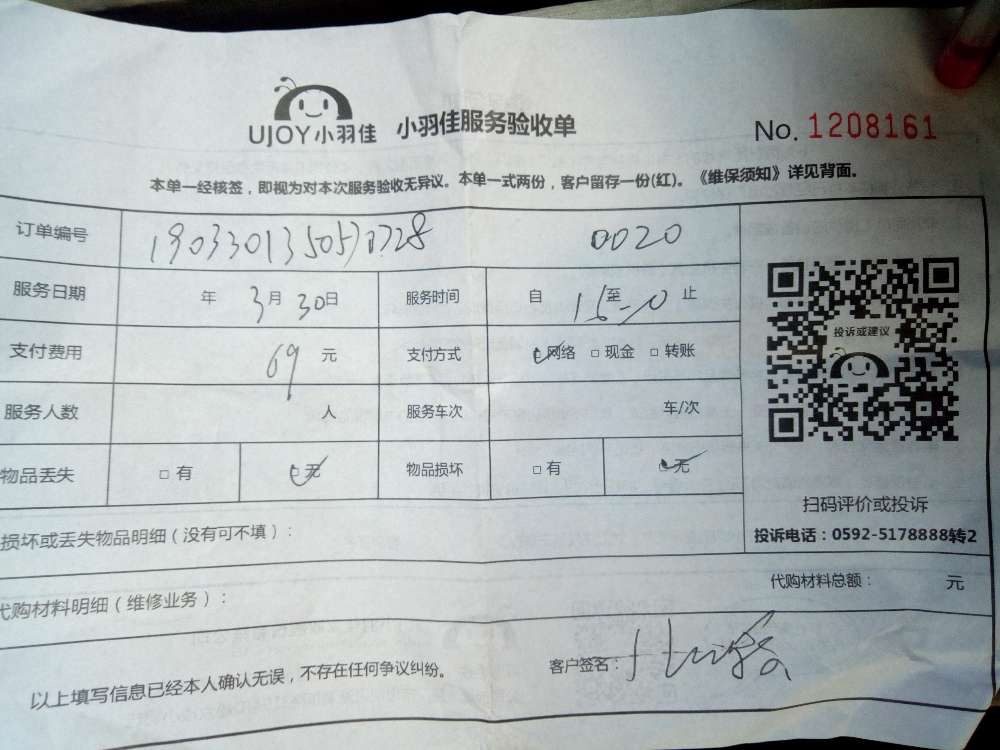 UJOY小羽佳 小羽佳服务验收单 No. 1208161
本单一经核签，即视为对本次服务验收无异议。本单一式两份，客户留存一份(红)。《维保须知》详见背面。
订单编号 0020
服务日期 年 3月30日 服务时间 自 至 止
支付费用 69 元 支付方式 网络 □现金 □转账
服务人数 人 服务车次 车/次
物品丢失 □有 无 物品损坏 □有 无
投诉或建议
扫码评价或投诉
投诉电话：0592-5178888转2
损坏或丢失物品明细（没有可不填）：
代购材料明细（维修业务）： 代购材料总额： 元
以上填写信息已经本人确认无误，不存在任何争议纠纷。 客户签名：